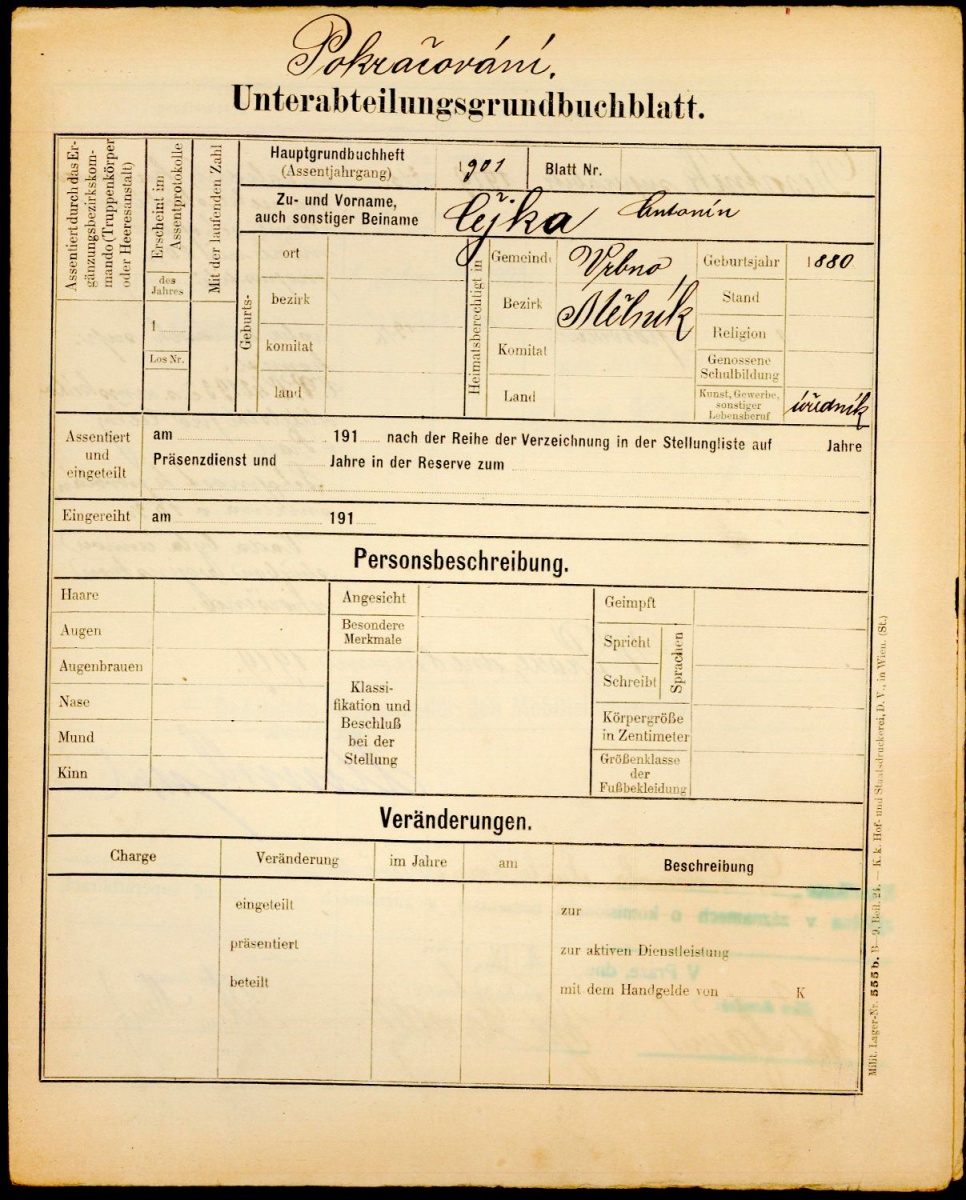 Pokračování.
Unterabteilungsgrundbuchblatt.
Assentiert durch das Er-
gänzungsbezirkskom-
mando (Truppenkörper
oder Heeresanstalt)
Erscheint im
Assentprotokolle
des
Jahres
1
Los Nr.
Mit der laufenden Zahl
Hauptgrundbuchheft
(Assentjahrgang)
1901
Blatt Nr.
Zu- und Vorname,
auch sonstiger Beiname
Čejka Antonín
Geburts-
ort
bezirk
komitat
land
Heimatsberechtigt in
Gemeinde
Vrbno
Bezirk
Mělník
Komitat
Land
Geburtsjahr
1880
Stand
Religion
Genossene
Schulbildung
Kunst, Gewerbe,
sonstiger
Lebensberuf
úředník
Assentiert
und
eingeteilt
am 191 nach der Reihe der Verzeichnung in der Stellungliste auf Jahre
Präsenzdienst und Jahre in der Reserve zum
Eingereiht
am 191
Personsbeschreibung.
Haare
Augen
Augenbrauen
Nase
Mund
Kinn
Angesicht
Besondere
Merkmale
Klassi-
fikation und
Beschluß
bei der
Stellung
Geimpft
Spricht
Schreibt
Sprachen
Körpergröße
in Zentimeter
Größenklasse
der
Fußbekleidung
Veränderungen.
Charge
Veränderung
im Jahre
am
Beschreibung
eingeteilt
zur
präsentiert
zur aktiven Dienstleistung
beteilt
mit dem Handgelde von K
Milit. Lager-Nr. 555 b. B—9, Beil. 24. — K. k. Hof- und Staatsdruckerei, D. V., in Wien. (St.)